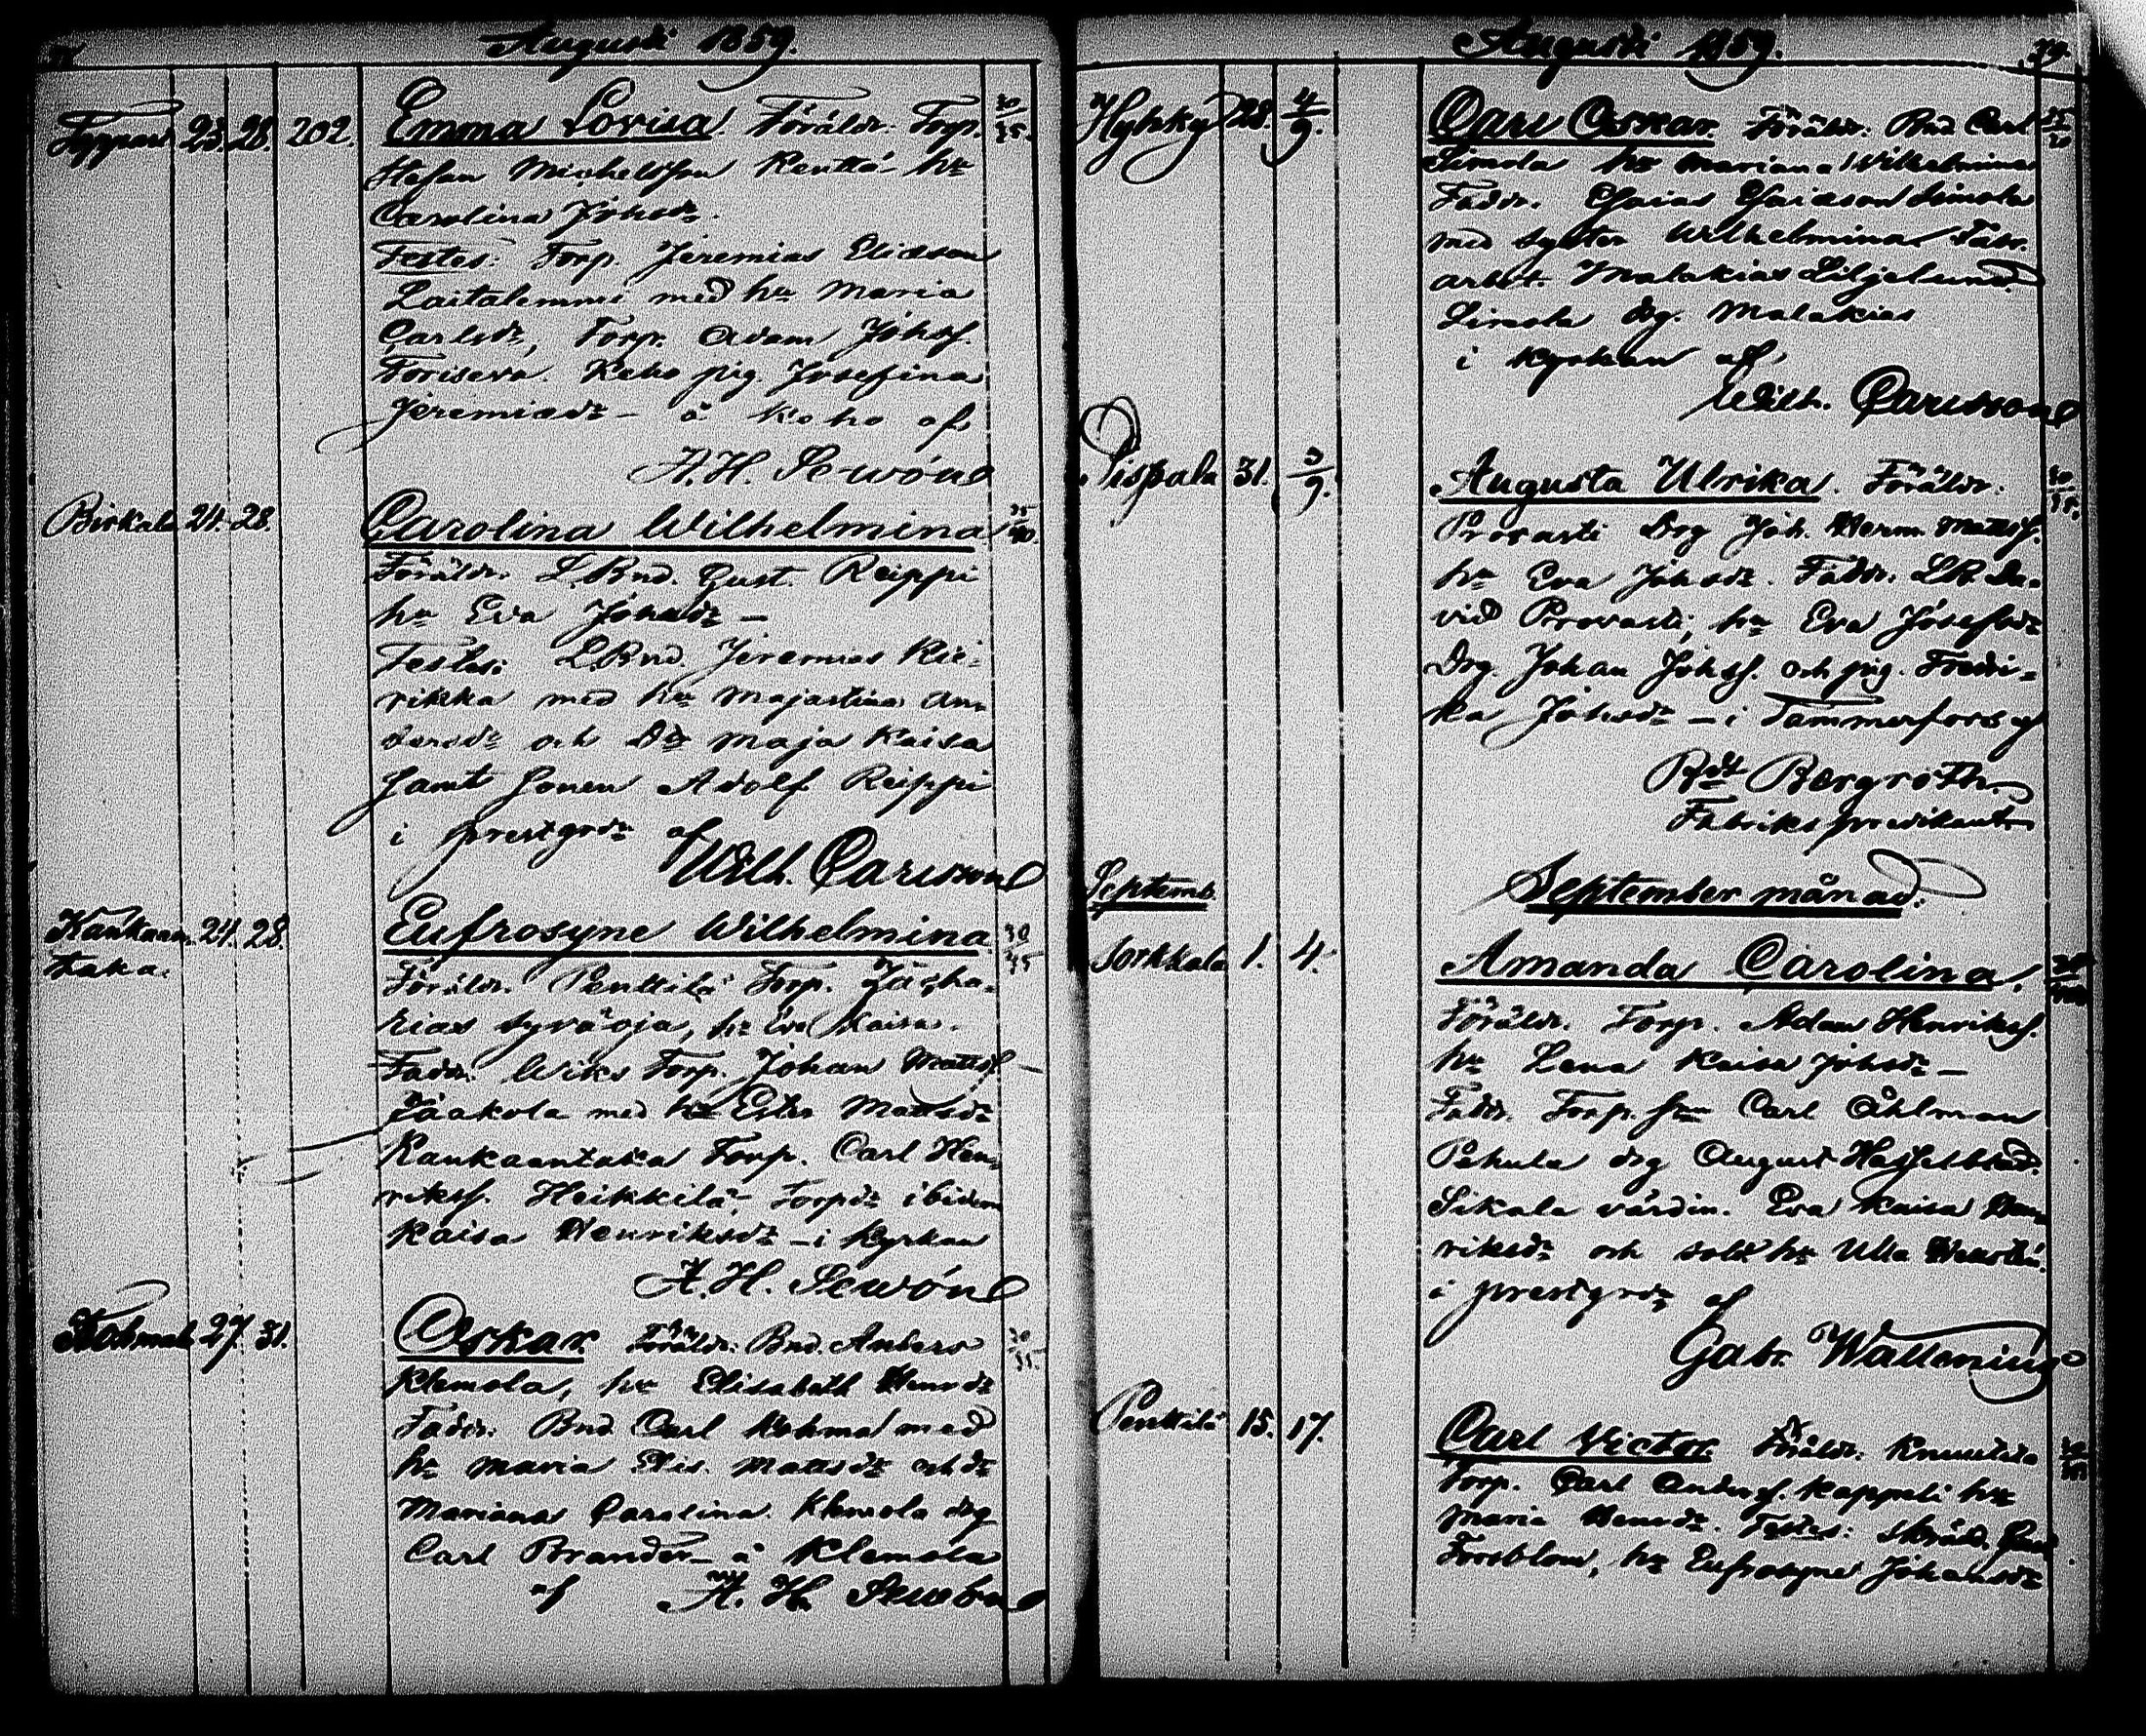 Augusti 1859.
23. 28. 202. Emma Lovisa. Föräldr: Torp. 30/35.
Stefan Michelsson Kenttä hu
Carolina Johsdr.
Testes: Torp. Jeremias Eliasson
Laitalemmi med hu Maria
Carlsdr, Torp. Adam Johss.
Koho pig. Josefina
Jeremiasdr – å Koho af
A. H. Sewón
Birkala 24. 28. Carolina Wilhelmina 35/40.
Föräldr: L.Bnd. Gust. Reippi
hu Eva Johsdr –
Testes: L.Bnd. Jeremias Kie-
rikka med hu Majastina An-
dersdr och Dr Maja Kaisa
samt sonen Adolf Reippi
i prestgrdn af
Wilh. Carlsson
Kankaan- 24. 28. Eufrosyne Wilhelmina 30/35
taka.
Föräldr. Penttilä Torp. Zacha-
rias Syväoja, hu Eva Kaisa.
Faddr: Wiks Torp. Johan Mattss –
Jaakola med hu Ester Mattsdr
Kankaantaka Torp. Carl Hen-
rikss. Heikkilä – Torpdr ibidem
Kaisa Henriksdr – i Kyrkan
A. H. Sewón
27. 31. Oskar. Föräldr: Bnd. Anders 30/35.
Klemola, hu Elisabeth Henrdr
Faddr: Bnd Carl Kohmal med
hu Maria Elis. Mattsdr och dr
Mariana Carolina Klemola drg
Carl Brander – å Klemola
af A. H. Sewón
Augusti 1859. 39.
Hyhky 28. 4/9. Carl Oskar. Föräldr: Bnd Carl
Simola hu Mariana Wilhelmina
Faddr. Esaias Esaiasson Simola
med syster Wilhelmina Fabr.
arbet. Malakias Liljelund
Simola drg. Malakias
i Kyrkan af
Wilh. Carlsson
Pispala 31. 3/9. Augusta Ulrika. Föräldr: 30/35.
Provasti Drg Joh. Herm. Mattss.
hu Eva Johsdr. Faddr: LB. Da-
vid Provasti, hu Eva Josefsdr
Drg. Johan Johss. och pig. Fredri-
ka Johsdr – i Tammerfors af
Bergroth
Fabrikspredikant
Septemb. September månad.
Sorkkala 1. 4. Amanda Carolina.
Föräldr. Torp. Adam Henrikss.
hu Lena Kaisa Johsdr –
Faddr. Torp. sn Carl Åhlman
Pehula drg August Hasselblad
Sikala värdin. Eva Kaisa Hen-
riksdr och sold hu Ulla
i prestgrdn af
Gabr. Wallenius
Penttilä 15. 17. Carl Victor. Föräldr: Knuutila
Torp. Carl Anderss. Kappeli hu
Maria Henrdr. Testes: Skrädd.
Forsblom, hu Eufrosyne Johansdr